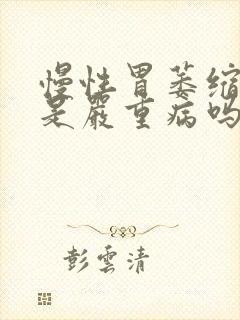 慢性胃萎缩
是严重病吗
彭雲清